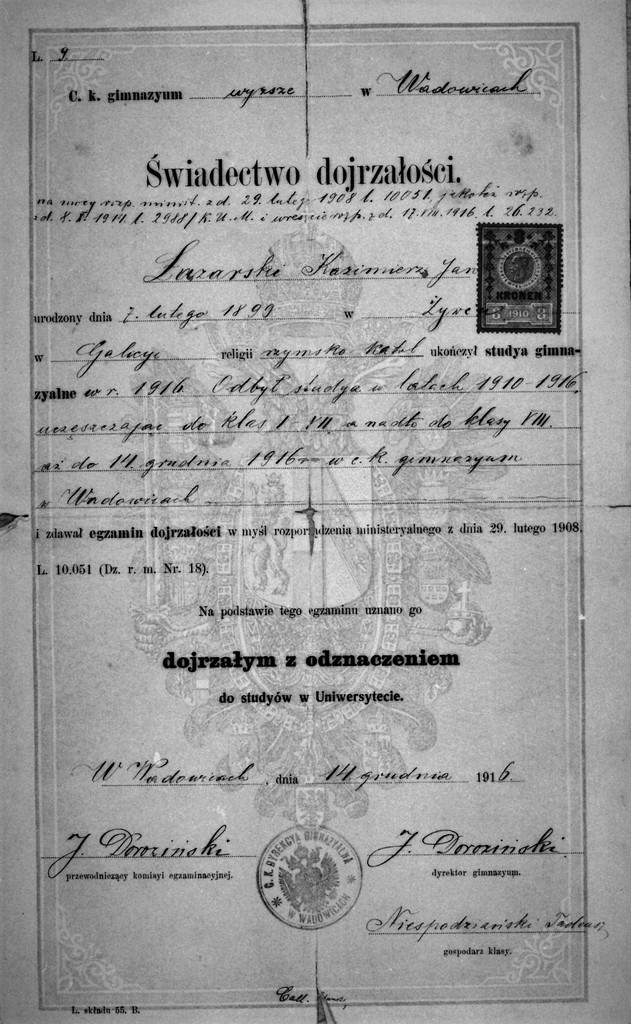 L. 9.
C. k. gimnazyum wyższe w Wadowicach
Świadectwo dojrzałości.
na mocy rozp. minist. z d. 29. lutego 1908 l. 10051. jakoteż rozp.
z d. 8. X. 1914 l. 2988/K.U.M. i wreszcie rozp. z d. 17. VIII. 1916. l. 26.232.
Łazarski Kazimierz Jan
urodzony dnia 7. lutego 1899 w Żywcu
KRONEN
8 1910 8
w Galicyi religii rzymsko katol ukończył studya gimna-
zyalne w r. 1916. Odbył studya w latach 1910-1916,
uczęszczając do klas I - VII. a nadto do klasy VIII.
aż do 14. grudnia 1916 r. w c. k. gimnazyum
w Wadowicach
i zdawał egzamin dojrzałości w myśl rozporządzenia ministeryalnego z dnia 29. lutego 1908.
L. 10.051 (Dz. r. m. Nr. 18).
Na podstawie tego egzaminu uznano go
dojrzałym z odznaczeniem
do studyów w Uniwersytecie.
W Wadowicach, dnia 14 grudnia 1916.
J. Doroziński
przewodniczący komisyi egzaminacyjnej.
C. K. DYREKCYA GIMNAZYALNA
W WADOWICACH
J. Doroziński
dyrektor gimnazyum.
Niespodziański Tadeusz
gospodarz klasy.
L. składu 55. B.